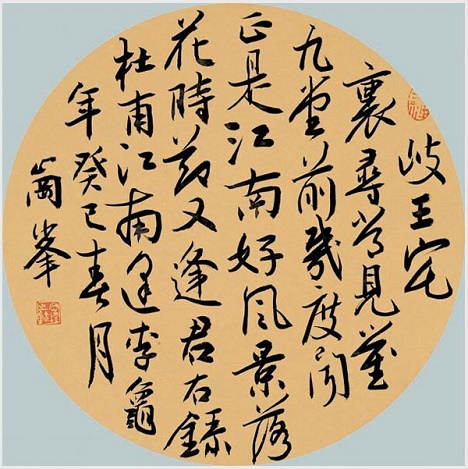 岐王宅
裏尋常見崔
九堂前幾度聞
正是江南好風景落
花時節又逢君右録
杜甫江南逢李龜
年癸巳春月
崗峯